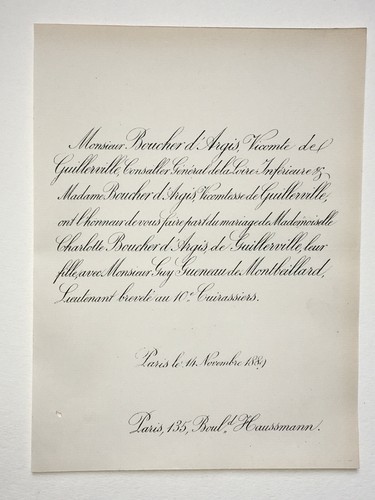 Monsieur Boucher d'Argis, Vicomte de
Guillerville, Consailler Général de la Loire Inférieure &
Madame Boucher d'Argis, Vicomtesse de Guillerville,
ont l'honneur de vous faire part du mariage de Mademoiselle
Charlotte Boucher d'Argis, de Guillerville, leur
fille, avec Monsieur Guy Gueneau de Montbeillard,
Lieutenant breveté au 10e Cuirassiers.
Paris le 14 Novembre
Paris, 135, Boul.d Haussmann.